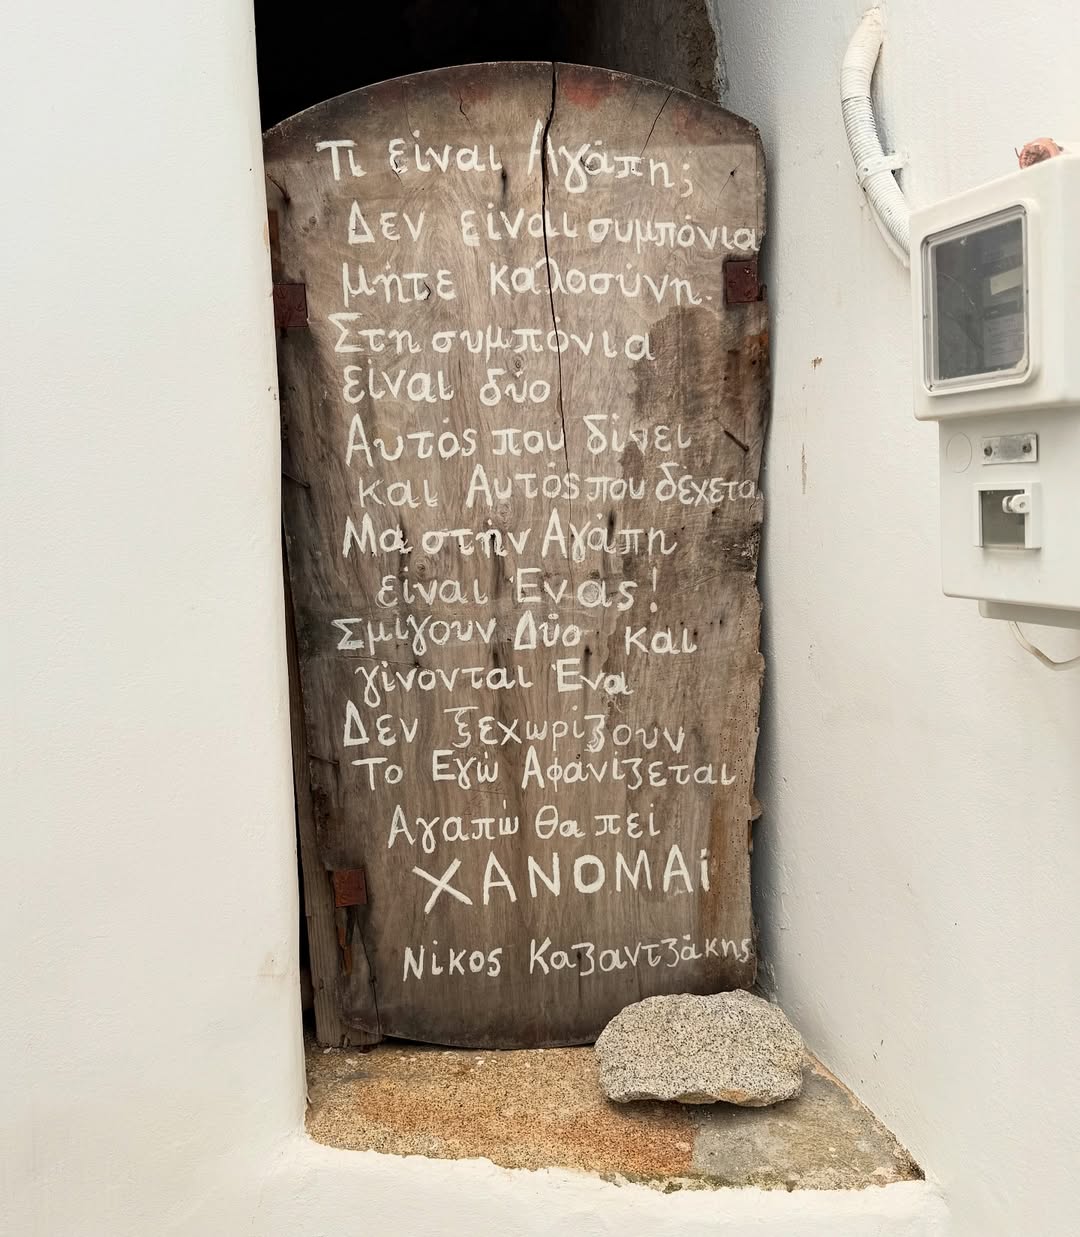 Τι είναι Αγάπη;
Δεν είναι συμπόνια
μήτε καλοσύνη.
Στη συμπόνια
είναι δύο
Αυτός που δίνει
και Αυτός που δέχεται
Μα στην Αγάπη
είναι Ένας!
Σμίγουν Δύο και
γίνονται Ένα
Δεν ξεχωρίζουν
Το Εγώ Αφανίζεται
Αγαπώ θα πεί
ΧΑΝΟΜΑί
Νίκος Καζαντζάκης